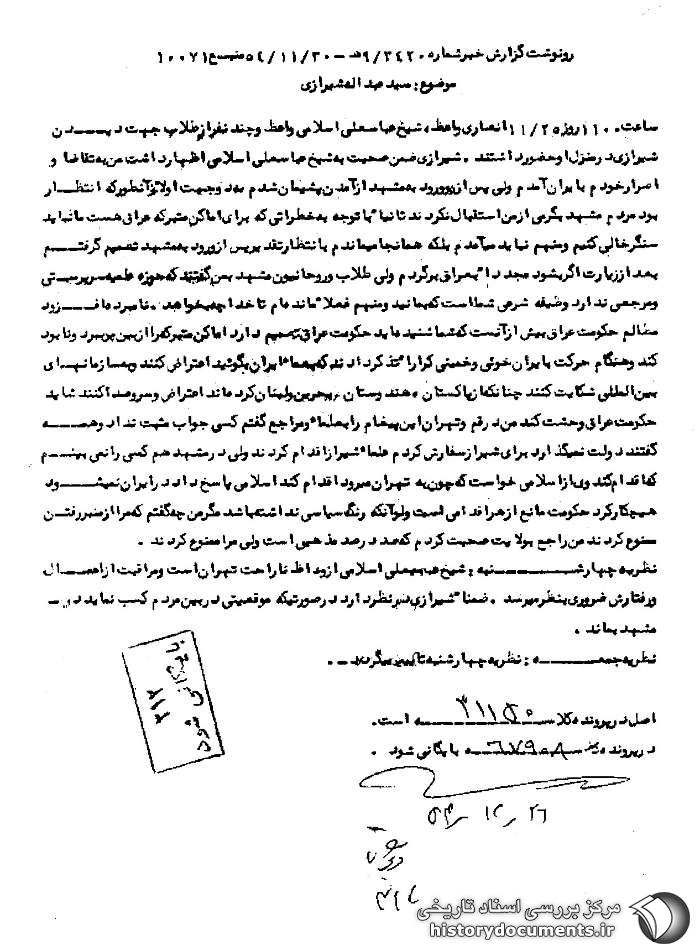 رونوشت گزارش خبر شماره ۹/۳۴۲۰هـ - ۵۴/۱۱/۳۰ منبع ۱۰۰۷۱
موضوع : سید عبداله شیرازی
ساعت ۱۱۰۰ روز ۱۱/۲۵ انصاری واعظ، شیخ عباسعلی اسلامی واعظ و چند نفر از طلاب جهت دیدن
شیرازی در منزل او حضور داشتند . شیرازی ضمن صحبت به شیخ عباسعلی اسلامی اظهار داشت من به تقاضا و
اصرار خودم بایران آمدم ولی پس از ورود به مشهد از آمدن پشیمان شدم بدو جهت اولا از آنطور که انتظار
بود مردم مشهد بگرمی از من استقبال نکردند ثانیا با توجه به خطراتی که برای اماکن متبرکه عراق هست ما نباید
سنگر خالی کنیم و منهم نباید میآمدم بلکه همانجا میماندم با انتظار تقدیر پس از ورود به مشهد تصمیم گرفتم
بعد از زیارت اگر بشود مجددا بعراق برگردم ولی طلاب و روحانیون مشهد بمن گفتند که حوزه علمیه سرپرستی
و مرجعی ندارد وظیفه شرعی شما است که بمانید و منهم فعلا مانده ام تا خدا چه بخواهد . نامبرده افزود
مظالم حکومت عراق بیش از آنست که شما شنیده اید حکومت عراق تصمیم دارد اماکن متبرکه را از بین ببرد و نابود
کند و هنگام حرکت بایران خوئی و خمینی کرارا تذکر دادند که بعلماء ایران بگوئید اعتراض کنند و به سازمانهای
بین المللی شکایت کنند چنانکه از پاکستان ، هندوستان ، بحرین و لبنان کرده اند اعتراض و سر و صدا کنند شاید
حکومت عراق وحشت کند من در قم و تهران این پیغام را بعلماء و مراجع گفتم کسی جواب مثبت نداد و همه
گفتند دولت نمیگذارد برای شیراز سفارش کردم علماء شیراز اقدام کردند ولی در مشهد هم کسی را نمی بینم
که اقدام کند وی از اسلامی خواست که چون به تهران میرود اقدام کند اسلامی پاسخ داد در ایران نمیشود
هیچ کار کرد حکومت مانع از هر اقدامی است ولو آنکه رنگ سیاسی نداشته باشد مگر من چه گفتم که مرا از منبر رفتن
ممنوع کردند من راجع بولایت صحبت کردم که صد در صد مذهبی است ولی مرا ممنوع کردند .
نظریه چهارشنبه : شیخ عباسعلی اسلامی از وعاظ ناراحت تهران است و مراقبت از اعمال
و رفتارش ضروری بنظر میرسد . ضمنا شیرازی در نظر دارد در صورتیکه موقعیتی در بین مردم کسب نماید در
مشهد بماند .
نظریه جمعه : نظریه چهارشنبه تایید میگردد .
اصل در پرونده کلاسه ۳۱۱۵۰ است.
در پرونده بایگانی شود .
۲۶ ر ۱۲ ر ۵۴
بایگانی شود
۳۱۲
۳۱۲
مرکز بررسی اسناد تاریخی
historydocuments.ir